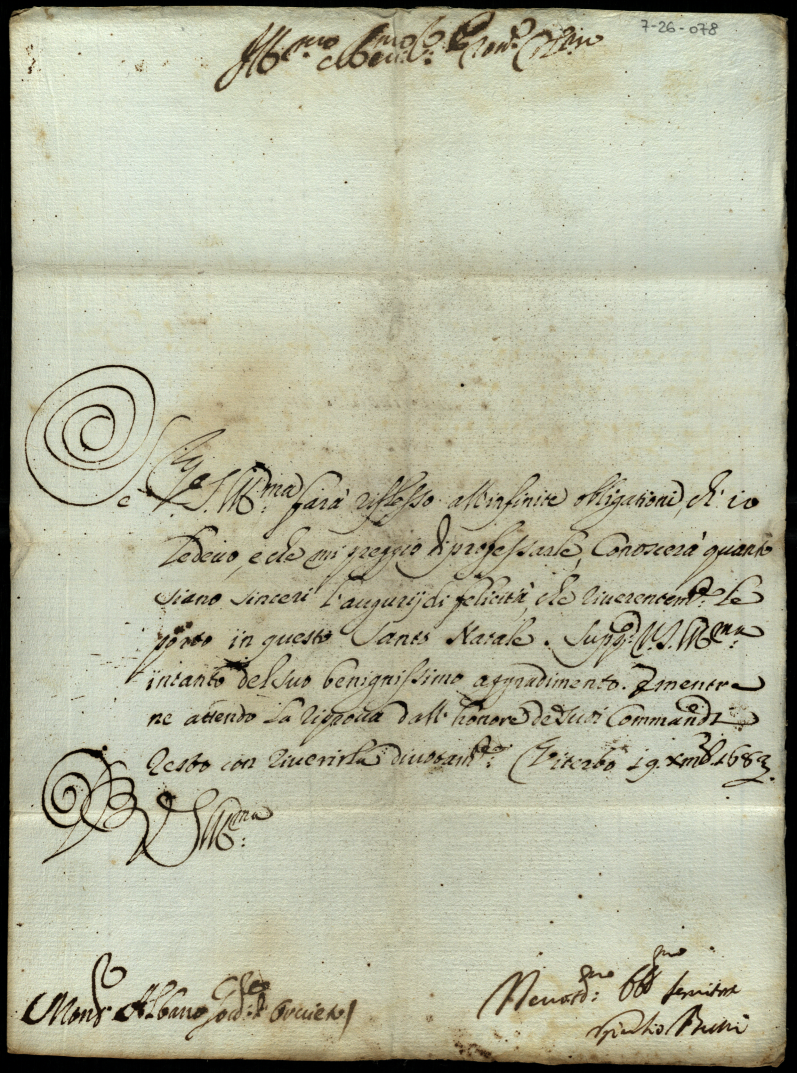 7-26-078
Ill.mo e Rev.mo Sig.r P.ron Col.mo
Se V.S. Ill.ma farà riflesso all'infinite obligationi, ch'io
ledevo, e che mi preggio di professarle, Conoscerà quanto
siano sinceri l'augurij di felicità, che riverentem.te le
porto in questo Santo Natale. Supp.co V.S. Ill.ma
intanto del suo benignissimo aggradimento. E mentre
ne attendo la riprova dall'honore de suoi Commandi
Resto con riverirla divotam.te Viterbo 19 Xmbre 1683.
D V.S. Ill.ma
Mons.r Albano Gov.re Orvieto
Devot.mo Obl.mo Servitore
Giulio Bussi